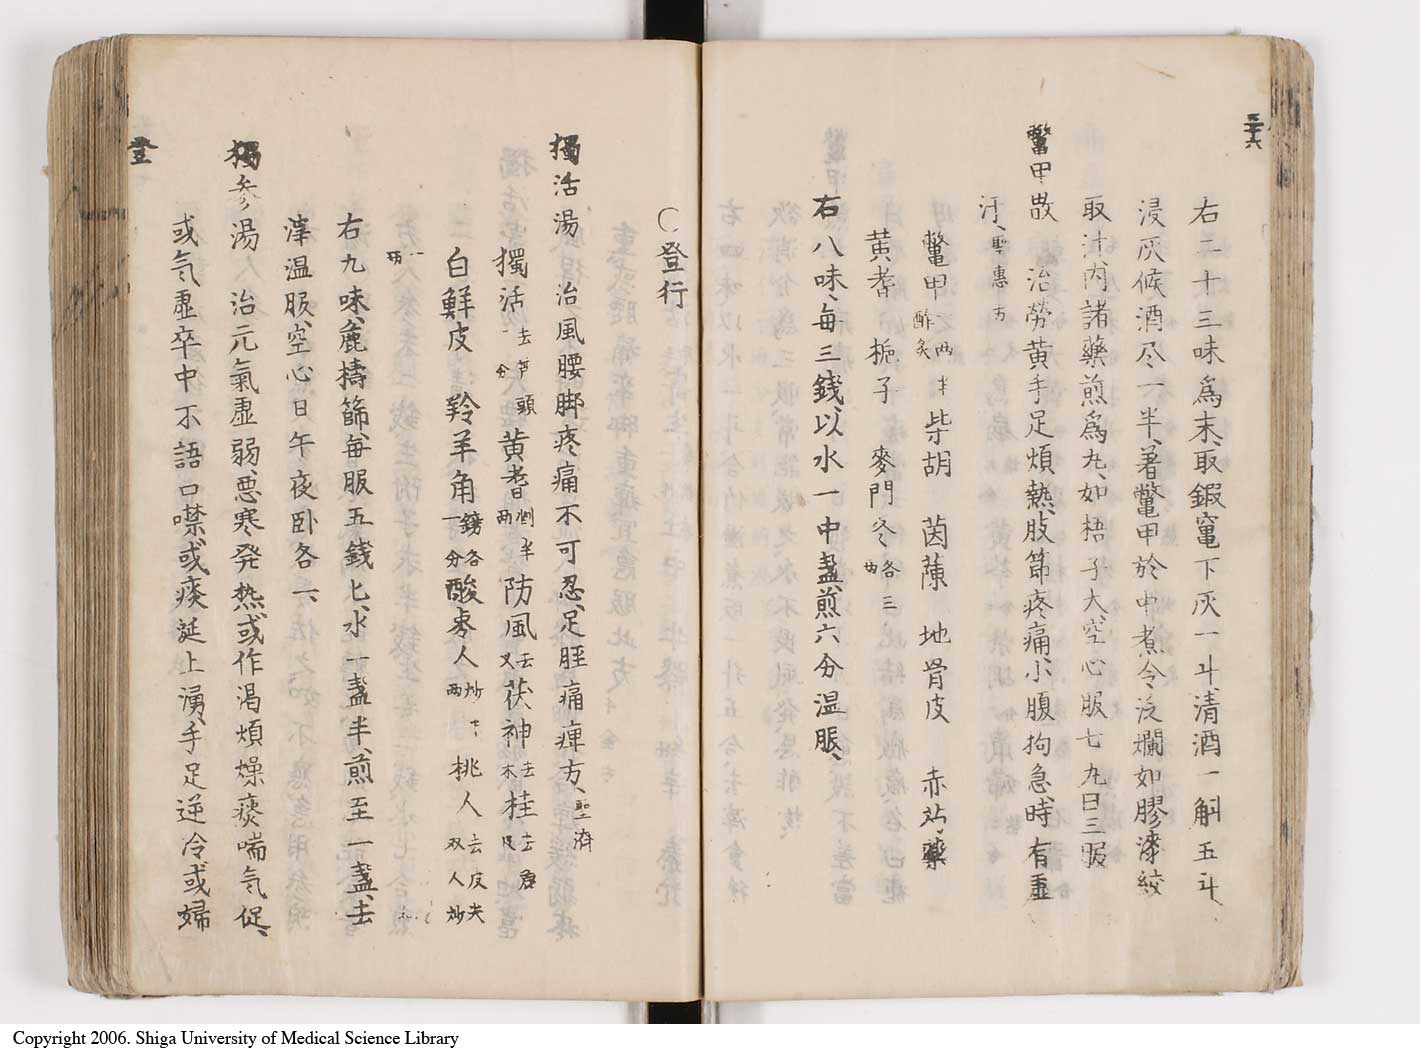 二十六
右二十三味爲末、取鍜竃下灰一斗、清酒一斛五斗
浸灰候酒尽一半、著鼈甲於中煮令泛爛如膠漆絞
取汁、内諸藥煎爲丸、如梧子大、空心服七丸日三服
鱉甲散 治勞黄手足煩熱、肢節疼痛小腹拘急、時有虚
汗、聖惠方
鼈甲一兩半醋炙 柴胡 茵蔯 地骨皮 赤芍藥
黄耆 梔子 麥門冬各三兩
右八味、毎三錢、以水一中盞、煎六分温服、
〇登行
獨活湯 治風腰脚疼痛不可忍、足脛痛痺方、聖濟
獨活去芦頭一分 黄耆剉半兩 防風去叉 茯神去木 桂去麁皮
白鮮皮 羚羊角鎊各一分 酸枣人炒二兩 桃人去皮尖双人炒
一兩
右九味、麁擣篩、毎服五錢匕、水一盞半、煎至一盞、去
滓温服、空心日午夜卧各一、
獨参湯 治元氣虚弱、悪寒発热、或作渇煩燥痰喘气促、
或气虚卒中不語口噤、或痰涎上湧、手足逆冷或婦
登
Copyright 2006. Shiga University of Medical Science Library